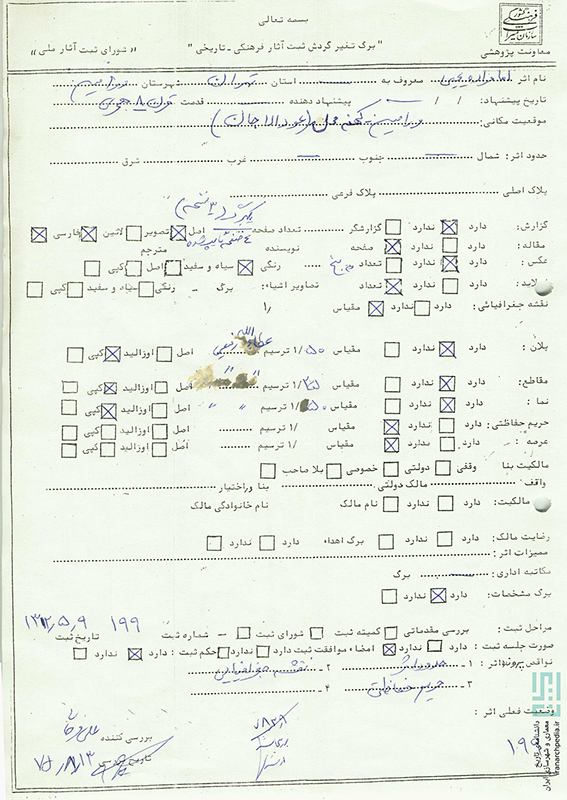 بسمه تعالی
سازمان میراث فرهنگی کشور
معاونت پژوهشی
" برگ تغیر گردش ثبت آثار فرهنگی - تاریخی "
" شورای ثبت آثار ملی "
نام اثر امامزاده یحیی معروف به استان تهران شهرستان ورامین
تاریخ پیشنهاد: / / پیشنهاد دهنده قدمت قرن ۸ هجری
موقعیت مکانی: ورامین کهنه گل
حدود اثر: شمال جنوب غرب شرق
پلاک اصلی پلاک فرعی
یکبرگ (۳ نسخه)
گزارش: دارد ندارد گزارشگر تعداد صفحه اصل تصویر لاتین فارسی
مقاله: دارد ندارد صفحه نویسنده ۴ صفحه تایپ شده مترجم
عکس: دارد ندارد تعداد رنگی سیاه و سفید اصل کپی
اسلاید: دارد ندارد تعداد تصاویر اشیاء: برگ - رنگی سیاه و سفید کپی
نقشه جغرافیائی: دارد ندارد مقیاس ۱/
پلان: دارد ندارد مقیاس ۱/۵۰ ترسیم عطاءالله رفیعی اصل اوزالید کپی
مقاطع: دارد ندارد مقیاس ۱/ ترسیم " " اصل اوزالید کپی
نما: دارد ندارد مقیاس ۱/ ترسیم " " اصل اوزالید کپی
حریم حفاظتی: دارد ندارد مقیاس ۱/ ترسیم اصل اوزالید کپی
عرصه: دارد ندارد مقیاس ۱/ ترسیم اصل اوزالید کپی
مالکیت بنا وقفی دولتی خصوصی بلا صاحب
واقف مالک دولتی بنا و راختیار
مالکیت: دارد ندارد نام مالک نام خانوادگی مالک
رضایت مالک: دارد ندارد برگ اهداء دارد ندارد
ممیزات اثر:
مکاتبه اداری: برگ
برگ مشخصات: دارد ندارد
مراحل ثبت: بررسی مقدماتی کمیته ثبت شورای ثبت شماره ثبت ۱۹۹ تاریخ ثبت ۱۳۱۲,۵,۹
صورت جلسه ثبت: دارد ندارد امضاء موافقت ثبت دارد ندارد حکم ثبت: دارد ندارد
نواقص پرونده اثر: ۱ - حدود اثر ۲ - نقشه جغرافیایی
۳ - حریم حفاظتی ۴ -
وضعیت فعلی اثر:
بررسی کننده
تاریخ بررسی ۷۵/۸/۱۳
دانشنامه‌ی تاریخ معماری و شهرسازی ایران
iranarchpedia.ir